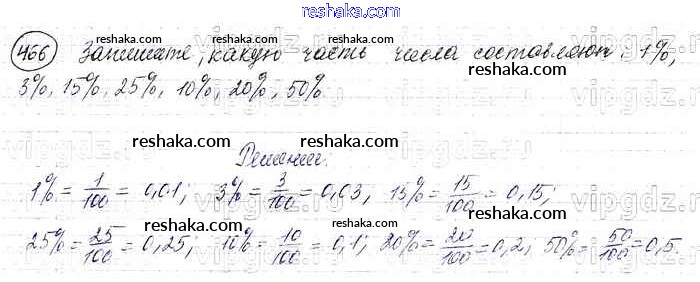 reshaka.com
466 Запишите, какую часть числа составляют: 1%,
reshaka.com
3%, 15%, 25%, 10%, 20%, 50%.
reshaka.com reshaka.com reshaka.com
Решение.
1% = 1/100 = 0,01; 3% = 3/100 = 0,03, 15% = 15/100 = 0,15;
reshaka.com reshaka.com reshaka.com
25% = 25/100 = 0,25; 10% = 10/100 = 0,1; 20% = 20/100 = 0,2; 50% = 50/100 = 0,5
reshaka.com